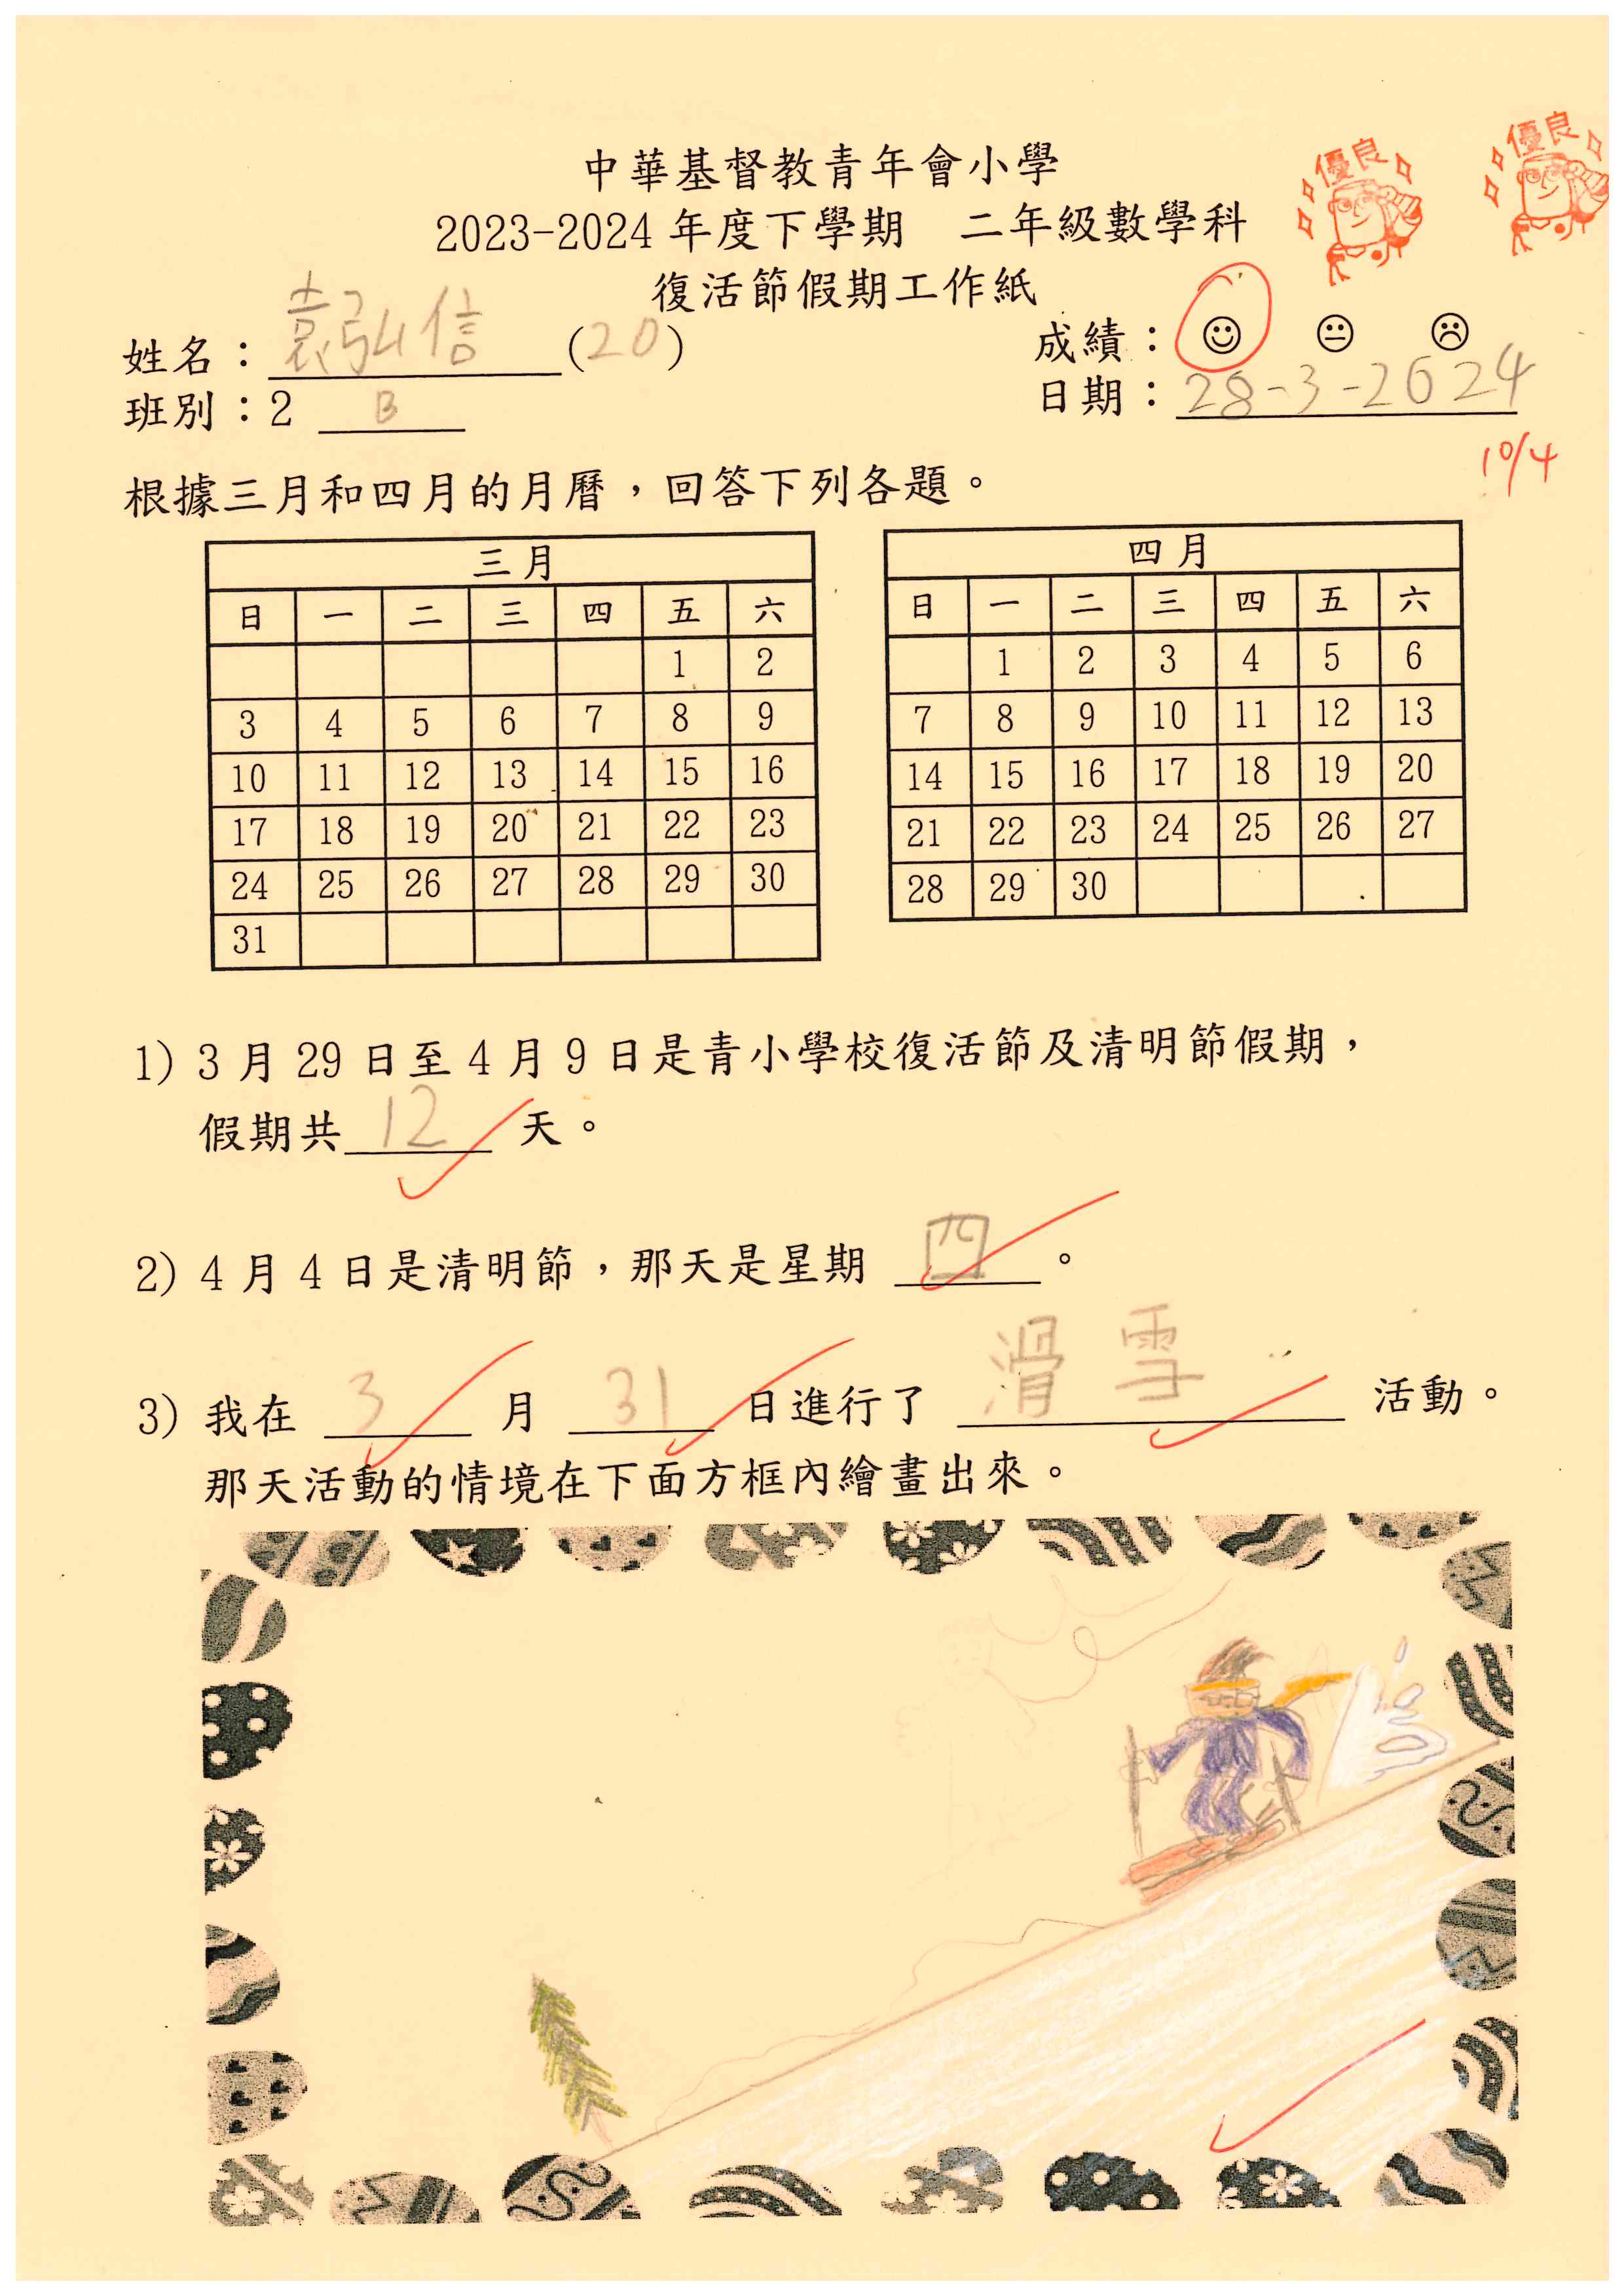 優良 優良
中華基督教青年會小學
2023-2024 年度下學期 二年級數學科
復活節假期工作紙
姓名：袁弘信 (20) 成績：
班別：2 B 日期：28-3-2024
10/4
根據三月和四月的月曆，回答下列各題。
三月
日 一 二 三 四 五 六
1 2
3 4 5 6 7 8 9
10 11 12 13 14 15 16
17 18 19 20 21 22 23
24 25 26 27 28 29 30
31
四月
日 一 二 三 四 五 六
1 2 3 4 5 6
7 8 9 10 11 12 13
14 15 16 17 18 19 20
21 22 23 24 25 26 27
28 29 30
1) 3 月 29 日至 4 月 9 日是青小學校復活節及清明節假期，
假期共 12 天。
2) 4 月 4 日是清明節，那天是星期 四 。
3) 我在 3 月 31 日進行了 滑雪 活動。
那天活動的情境在下面方框內繪畫出來。